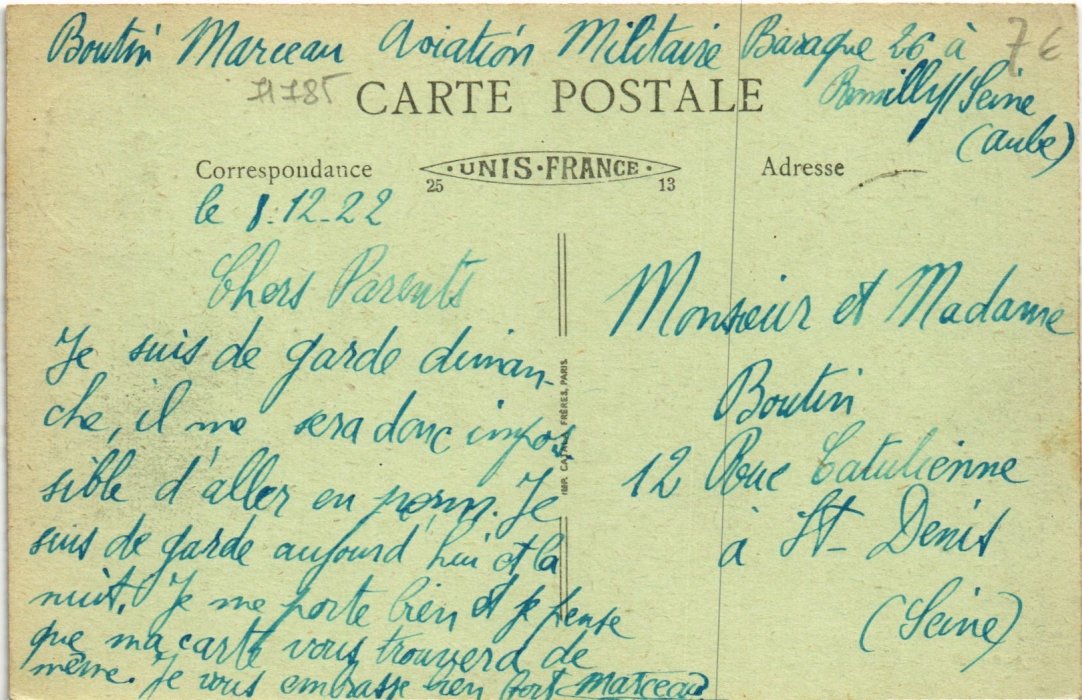 Boutin Marceau Aviation Militaire Baraque 26 à
Romilly/Seine
(Aube)
7 €
71785
CARTE POSTALE
Correspondance
UNIS-FRANCE
25
13
Adresse
le 8.12.22
Chers Parents
Je suis de garde diman-
che, il me sera donc impos
sible d'aller en perm. Je
suis de garde aujourd'hui et la
nuit. Je me porte bien et je pense
que ma carte vous trouvera de
même. Je vous embrasse bien fort Marceau
IMP. CATALA FRÈRES, PARIS.
Monsieur et Madame
Boutin
12 Rue Catulienne
à St- Denis
(Seine)